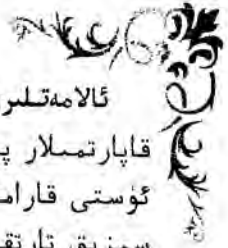 ئالامەتلىر
قاپارتمىلار پ
ئۈستى قارام